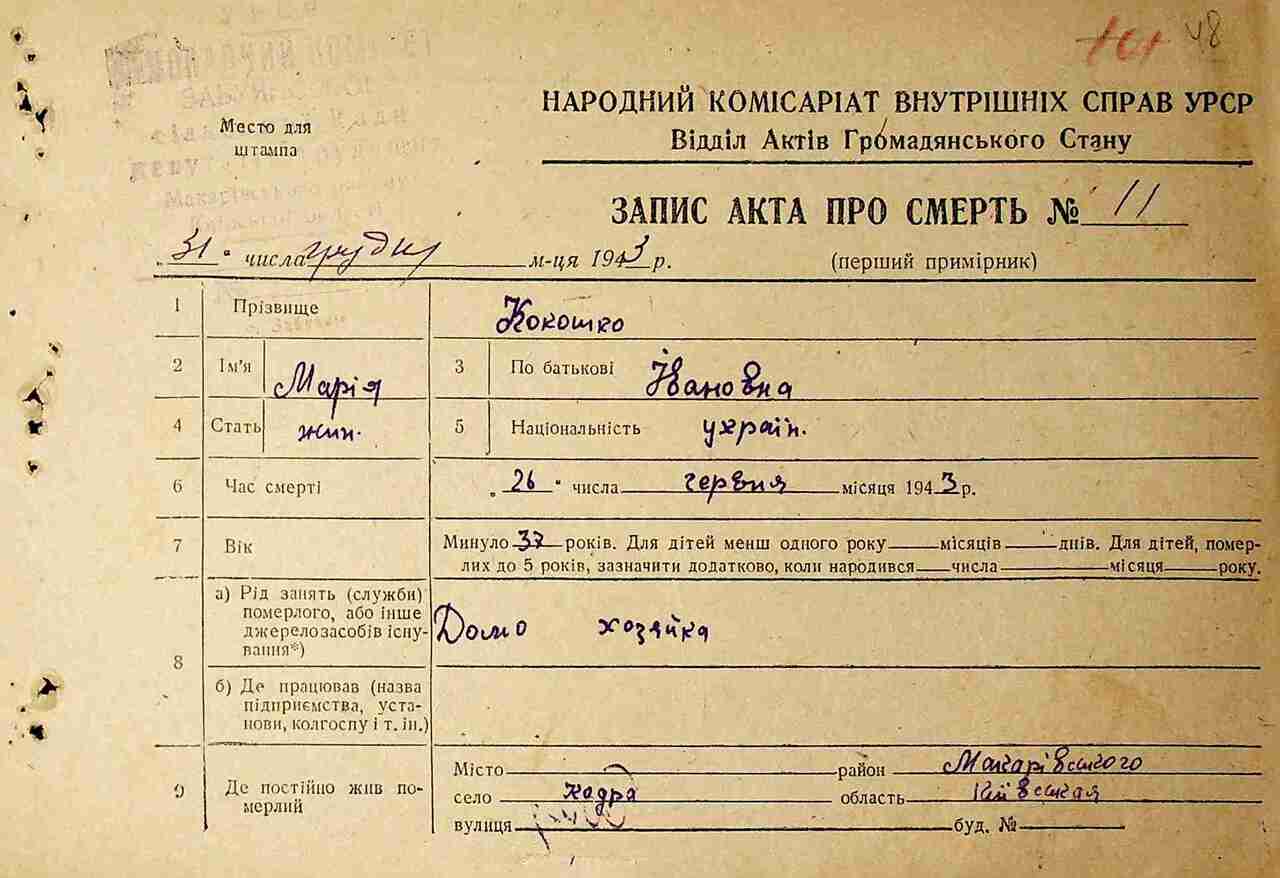 48
НАРОДНИЙ КОМІСАРІАТ ВНУТРІШНІХ СПРАВ УРСР
Відділ Актів Громадянського Стану
Место для
штампа
ЗАПИС АКТА ПРО СМЕРТЬ № 11
„31“ числа грудня м-ця 1943 р. (перший примірник)
1 Прізвище Кокошко
2 Ім'я Марія 3 По батькові Івановна
4 Стать жин. 5 Національність україн.
6 Час смерті „26“ числа червня місяця 1943 р.
7 Вік Минуло 37 років. Для дітей менш одного року місяців днів. Для дітей, помер-
лих до 5 років, зазначити додатково, коли народився числа місяця року.
8 а) Рід занять (служби)
померлого, або інше
джерело засобів існу-
вання*) Домо хозяйка
б) Де працював (назва
підприємства, уста-
нови, колгоспу і т. ін.)
9 Де постійно жив по-
мерлий
Місто район Макарівського
село кодра область Київская
вулиця буд. №